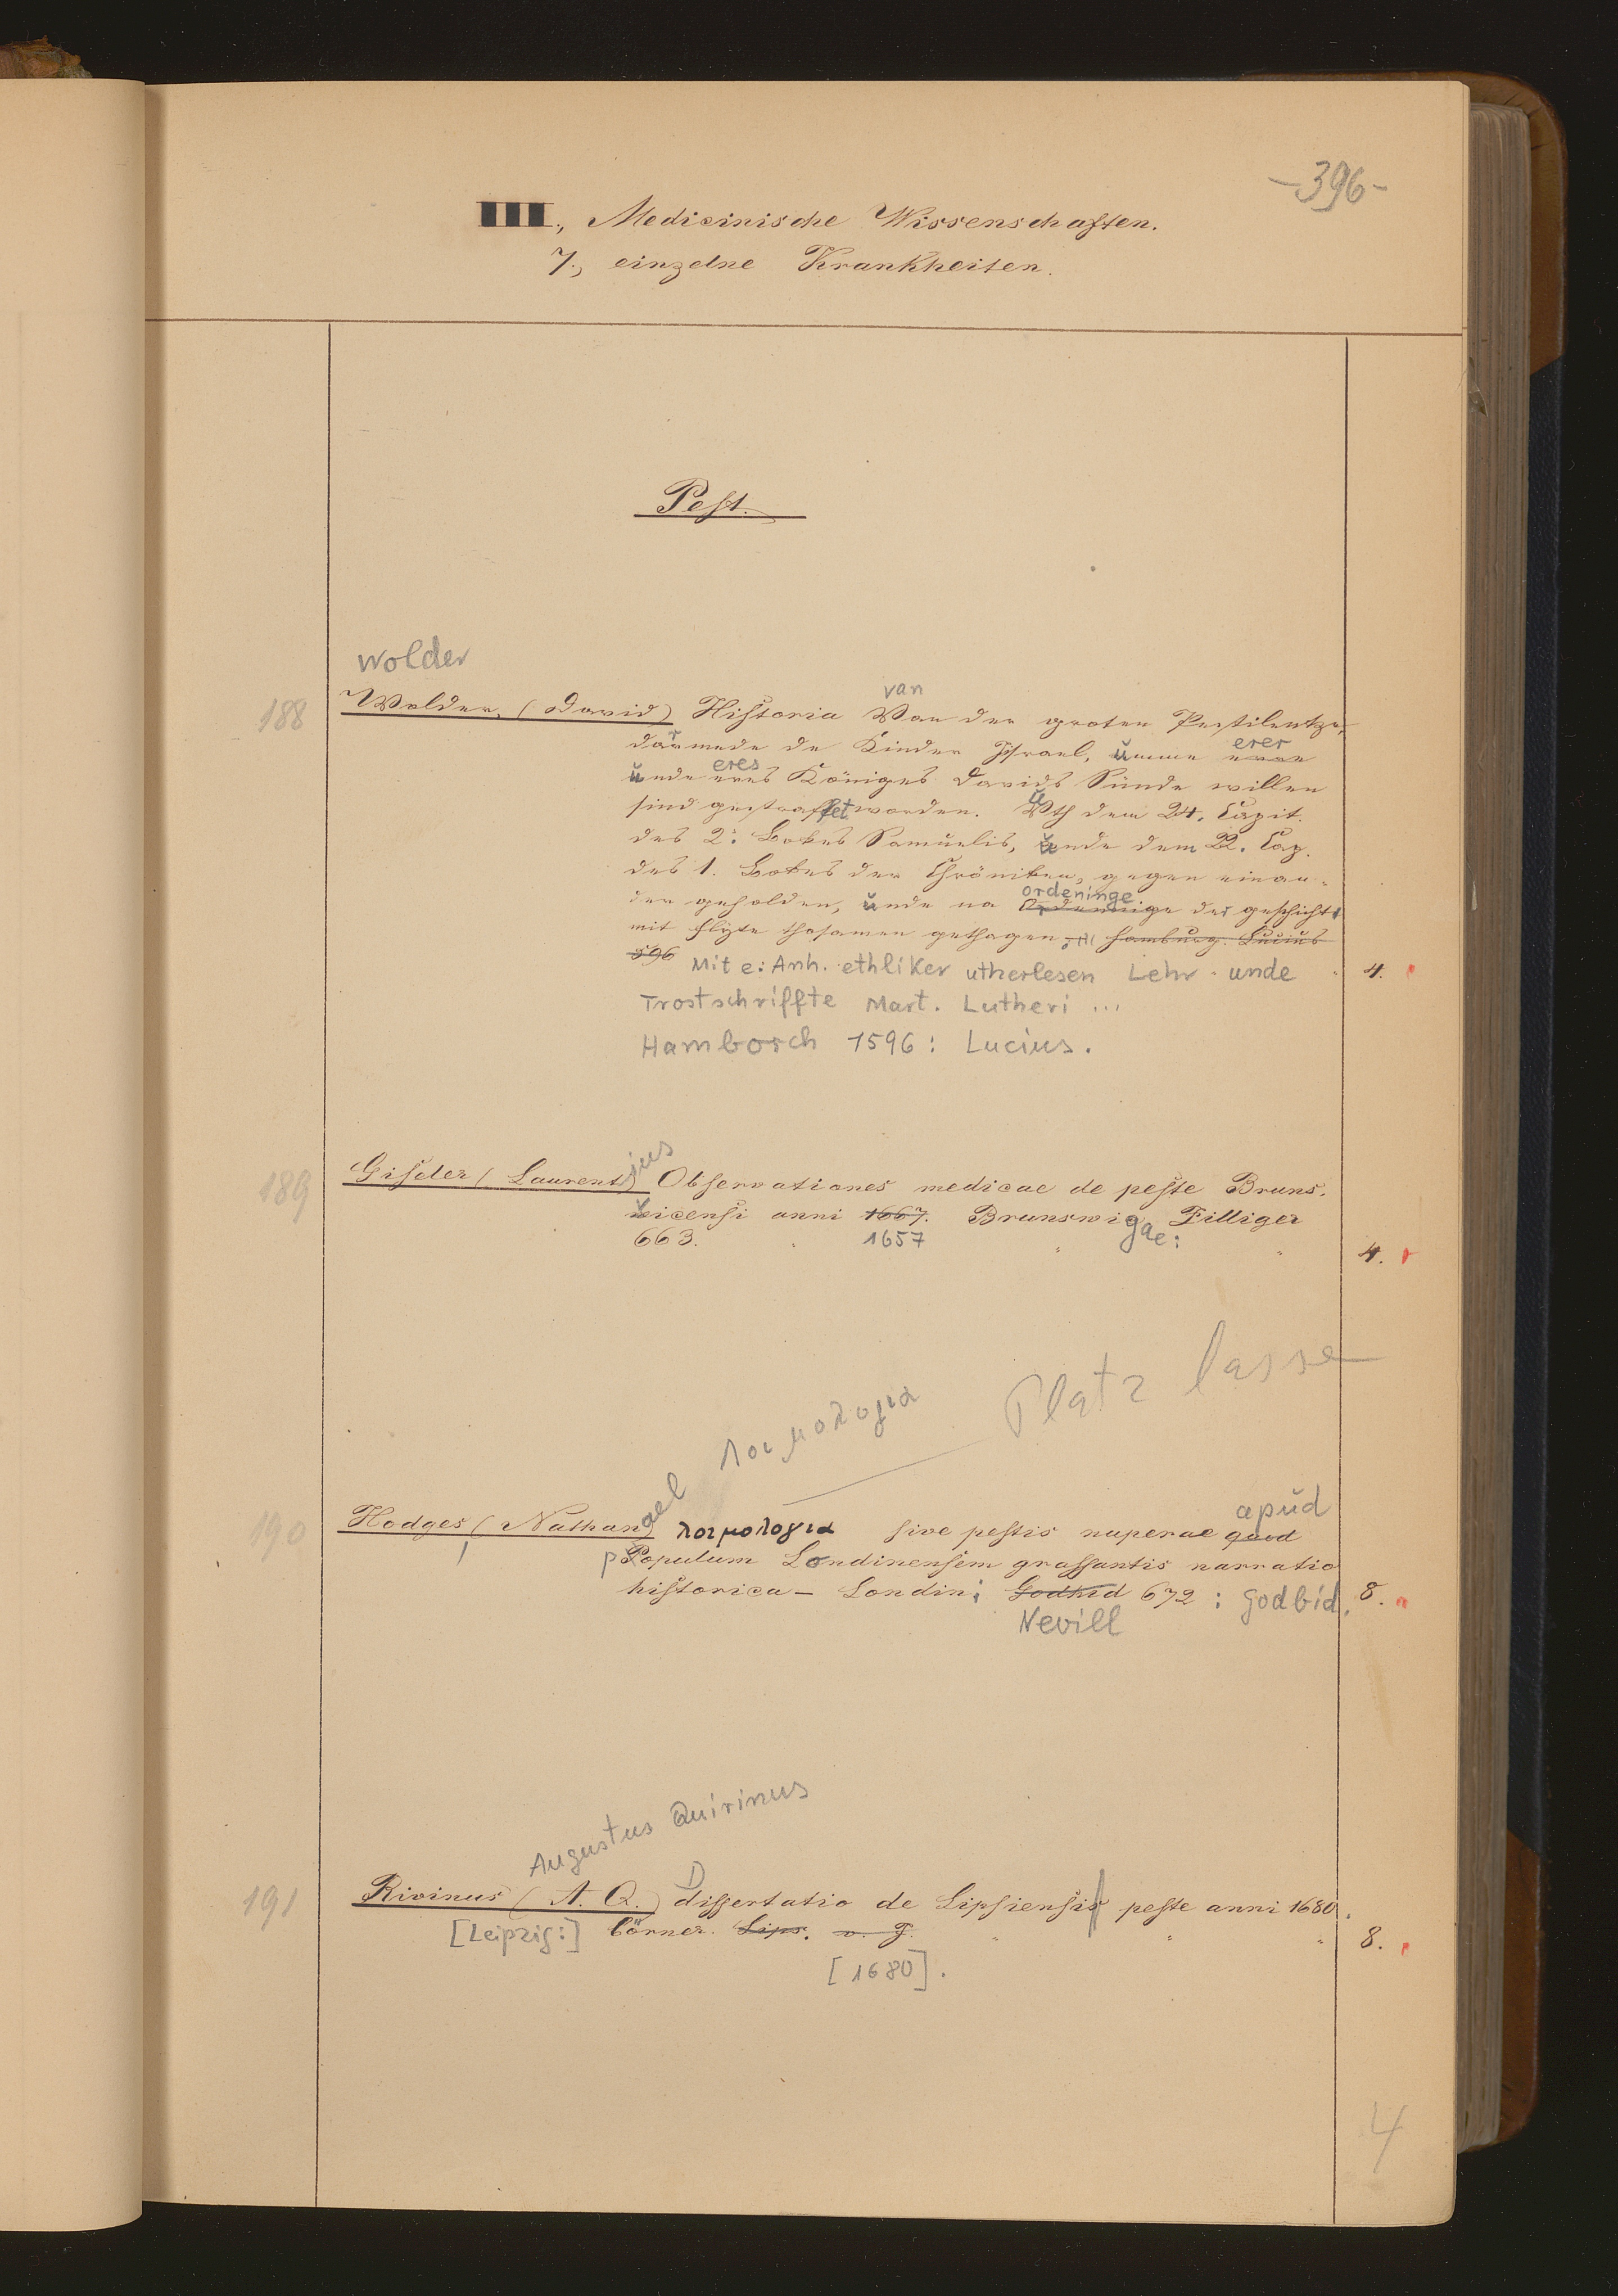 -396-
III., Medicinische Wissenschaften.
7., einzelne Krankheiten.
Pest.
Wolder
188 Wolder, (David) Historia Van der groten Pestilentze,
van
darmede de Kinder Israel, ümme erer
erer
ünde eres Königes Davids Sünde willen
eres
sind gestraffet worden. Uth dem 24. Capit.
des 2. Bokes Samuelis, ünde dem 22. Cap.
des 1. Bokes der Chröniken, gegen einan-
der geholden, ünde na der geschicht
ordeninge
mit flyte thosamen gethagen. Hamburg. Lucius
596 Mit e: Anh. ethliker utherlesen Lehr- unde 4.
Trostschriffte Mart. Lutheri ...
Hamborch 1596: Lucius.
189 Giseler (Laurent) Observationes medicae de peste Bruns.
ius
vicensi anni 1667. Brunswigae: Filliger
663. 1657 4.
Platz lasse
λοιμολογια
190 Hodges, (Nathan) λοιμολογια sive pestis nuperae quod
ael apud
populum Londinensem grassantis narratio
historica - Londini Godbid 672 : Godbid. 8.
Nevill
Augustus Quirinus
191 Rivinus (A. Q.) Dissertatio de Lipsiensi peste anni 1680.
[Leipzig:] Cörner. Lips. o. J. 8.
[1680].
4